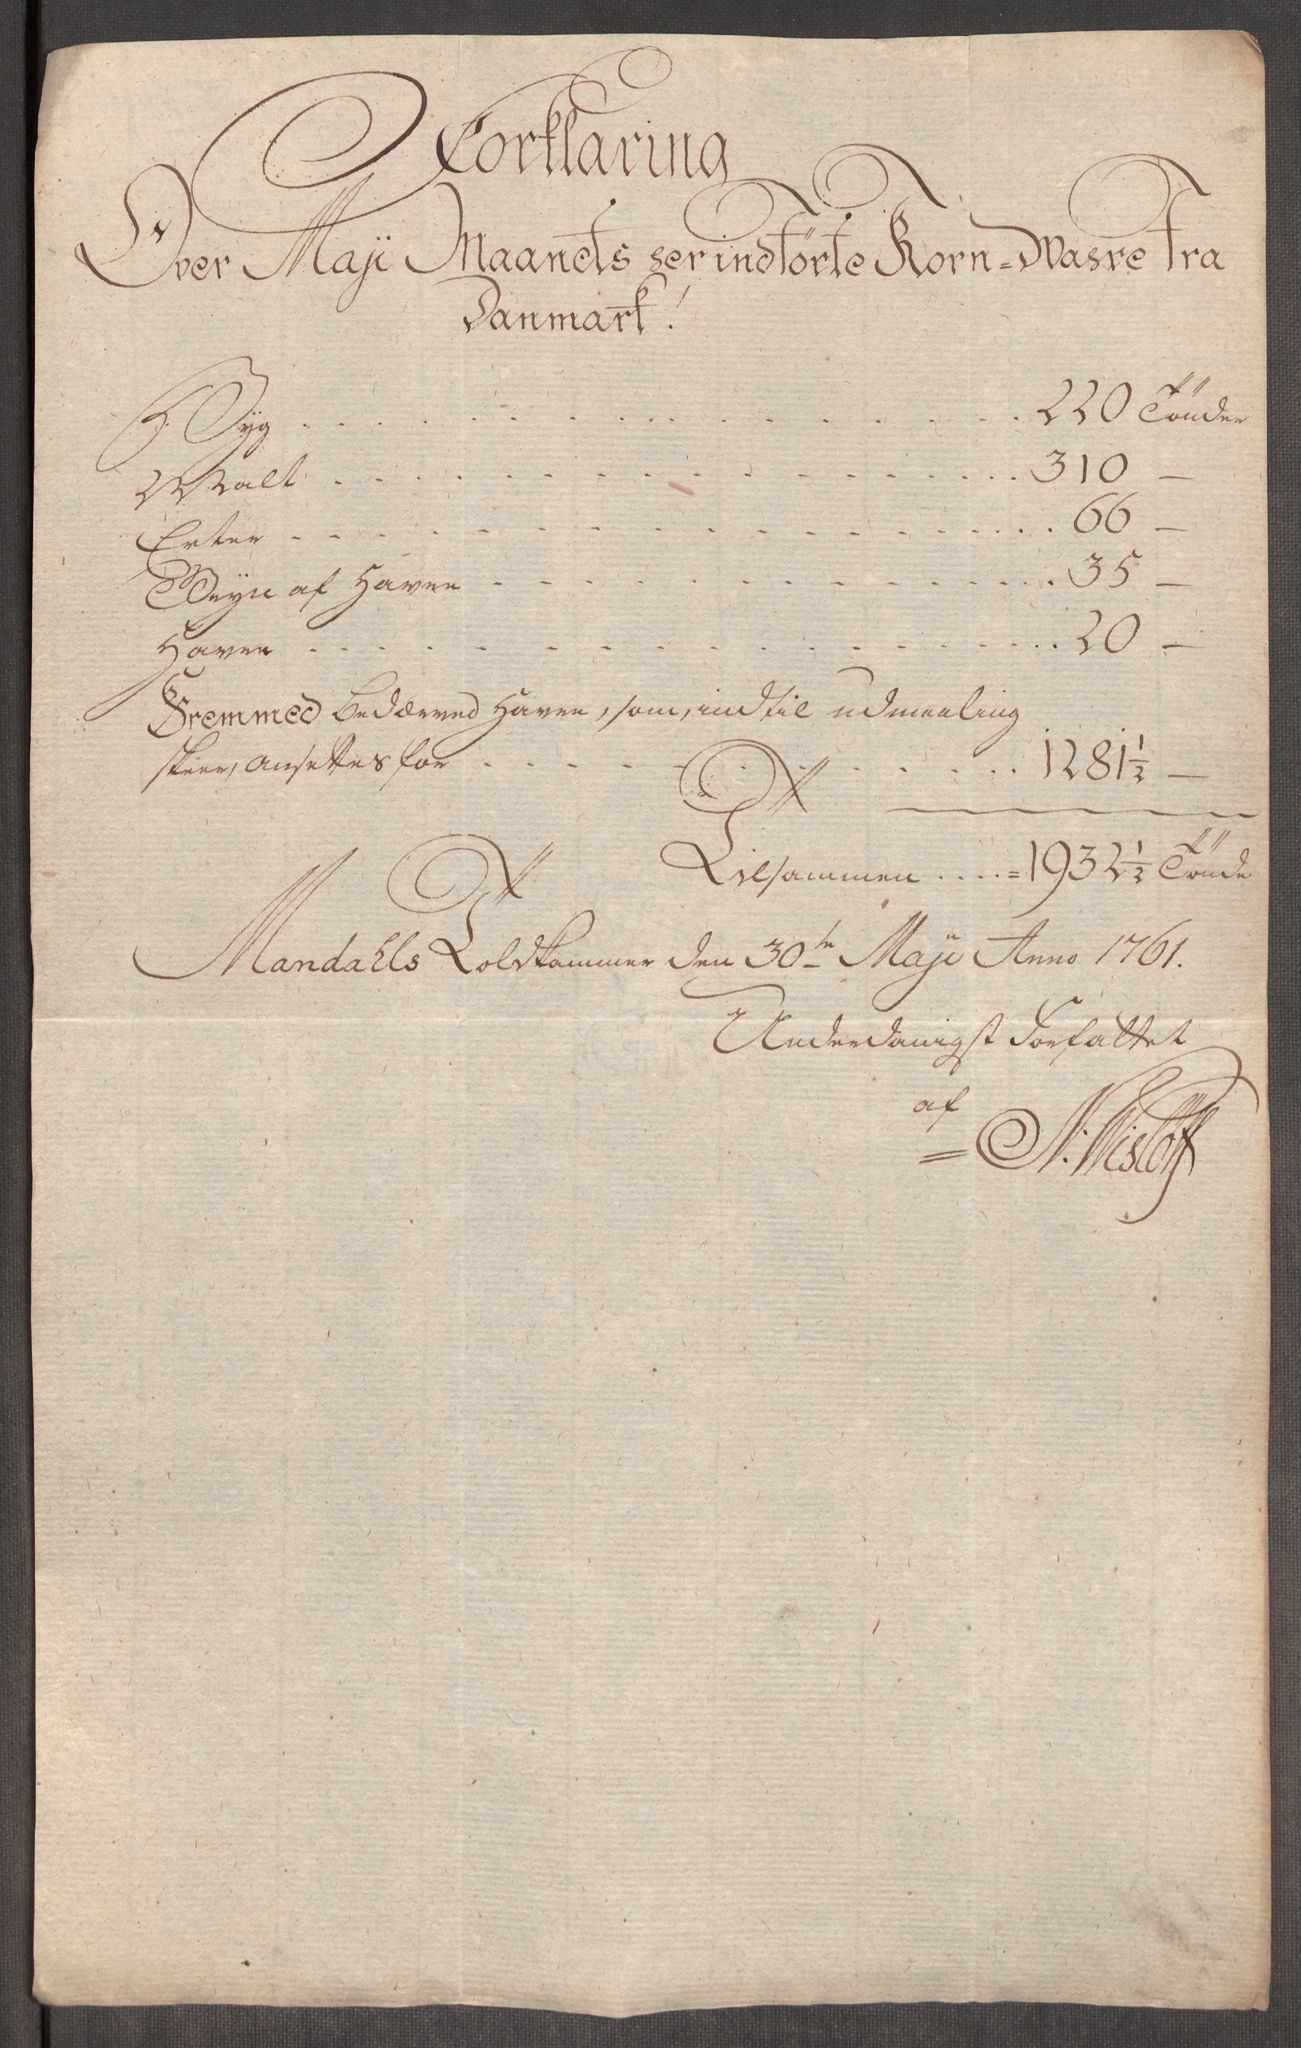 Forklaring
Over Maji Maanets her indførte Korn-Wahre fra
Danmark!
Byg . . . . 220 Tönder
Malt . . . . 310 —
Erter . . . . 66 —
Gryn af Havre . . . . 35 —
Havre . . . . 20 —
Fremmed bedærved Havre, som, indtil udmaaling
skeer, ansættes for . . . . 1281½ —
Tilsammen .... = 1932½ Tönde
Mandahls Toldkammer den 30te Maji Anno 1761.
Underdanigst forfattet
af
= N: Wisløff